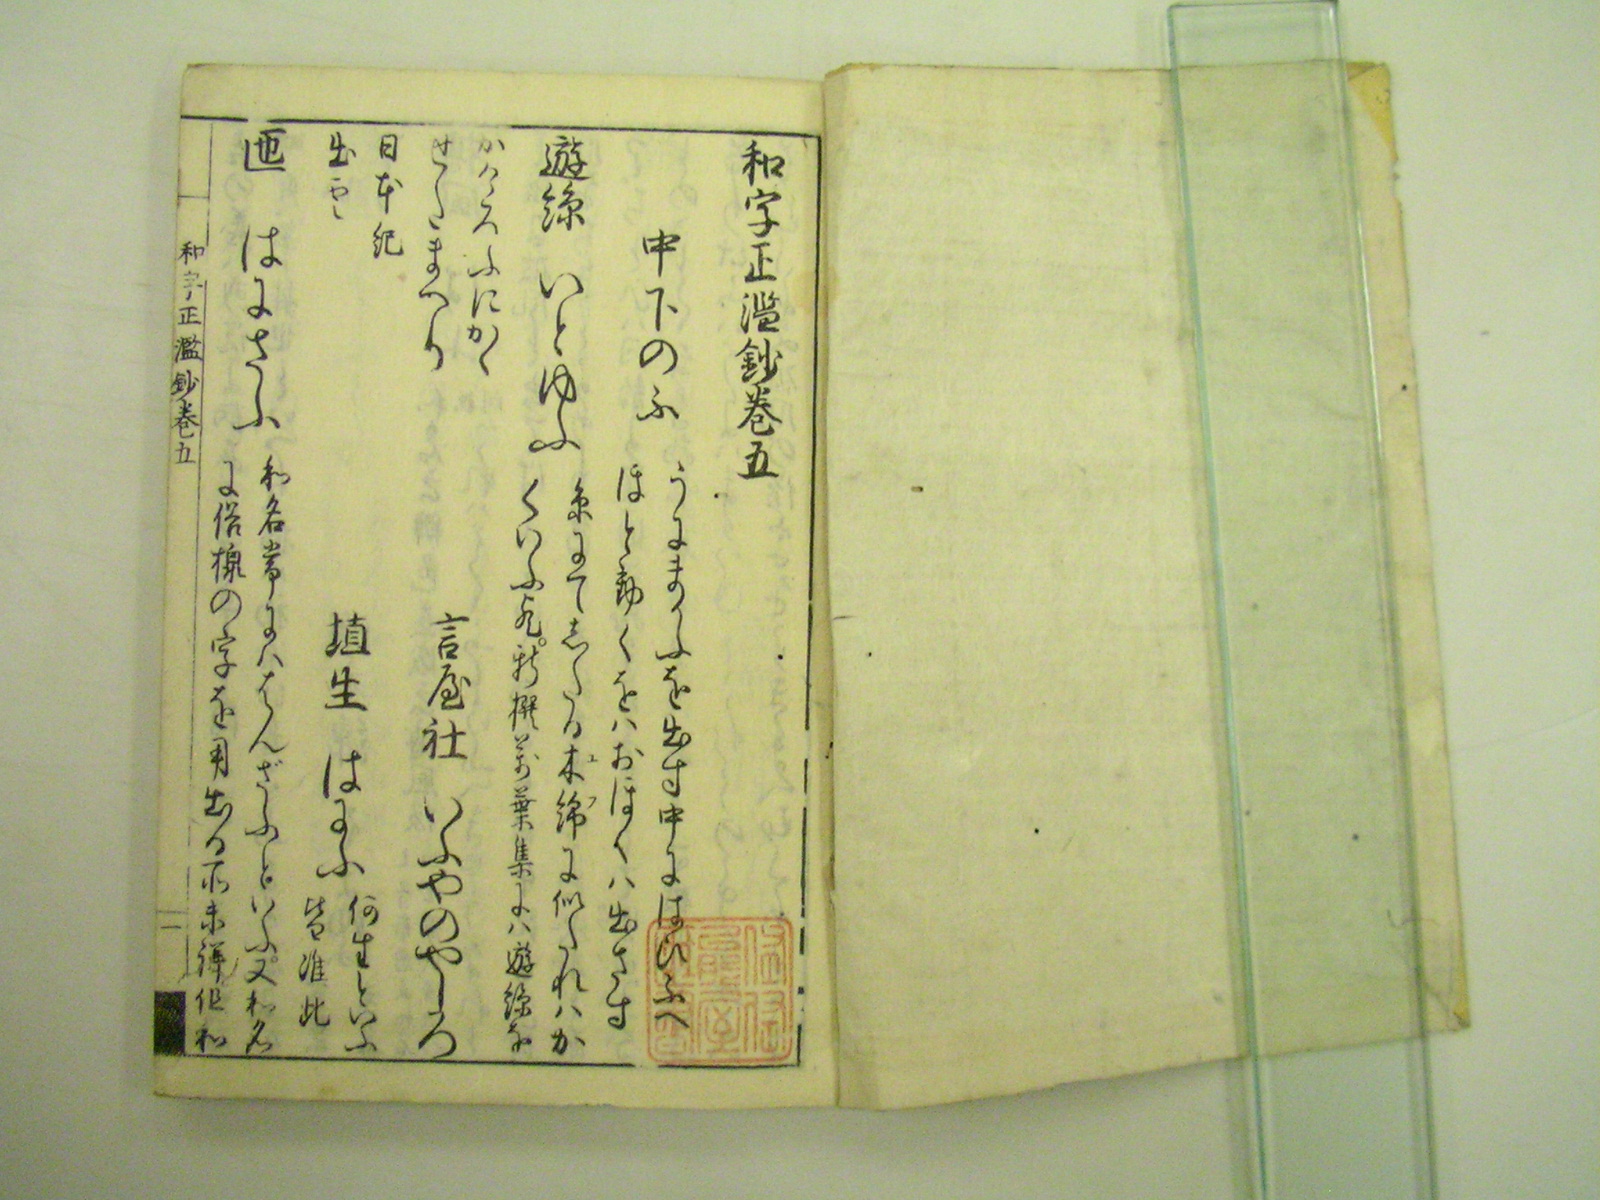 和字正濫鈔巻五
中下のふ
うにまかふを出す中にはひふへ
ほと動くをハおほくハ出さす
遊絲 いとゆふ
糸にてしたる木綿に似たれハか
くいふ 新撰萬葉集にハ遊絲を
かけろふにかく
せたまへり
言屋社 いふやのやしろ
日本紀
出
埴生 はにふ
何生といふ
皆准此
匜 はにさふ
和名常にハはんざふといふ又和名
に俗 の字を用出る所未詳但和
和字正濫鈔巻五
一